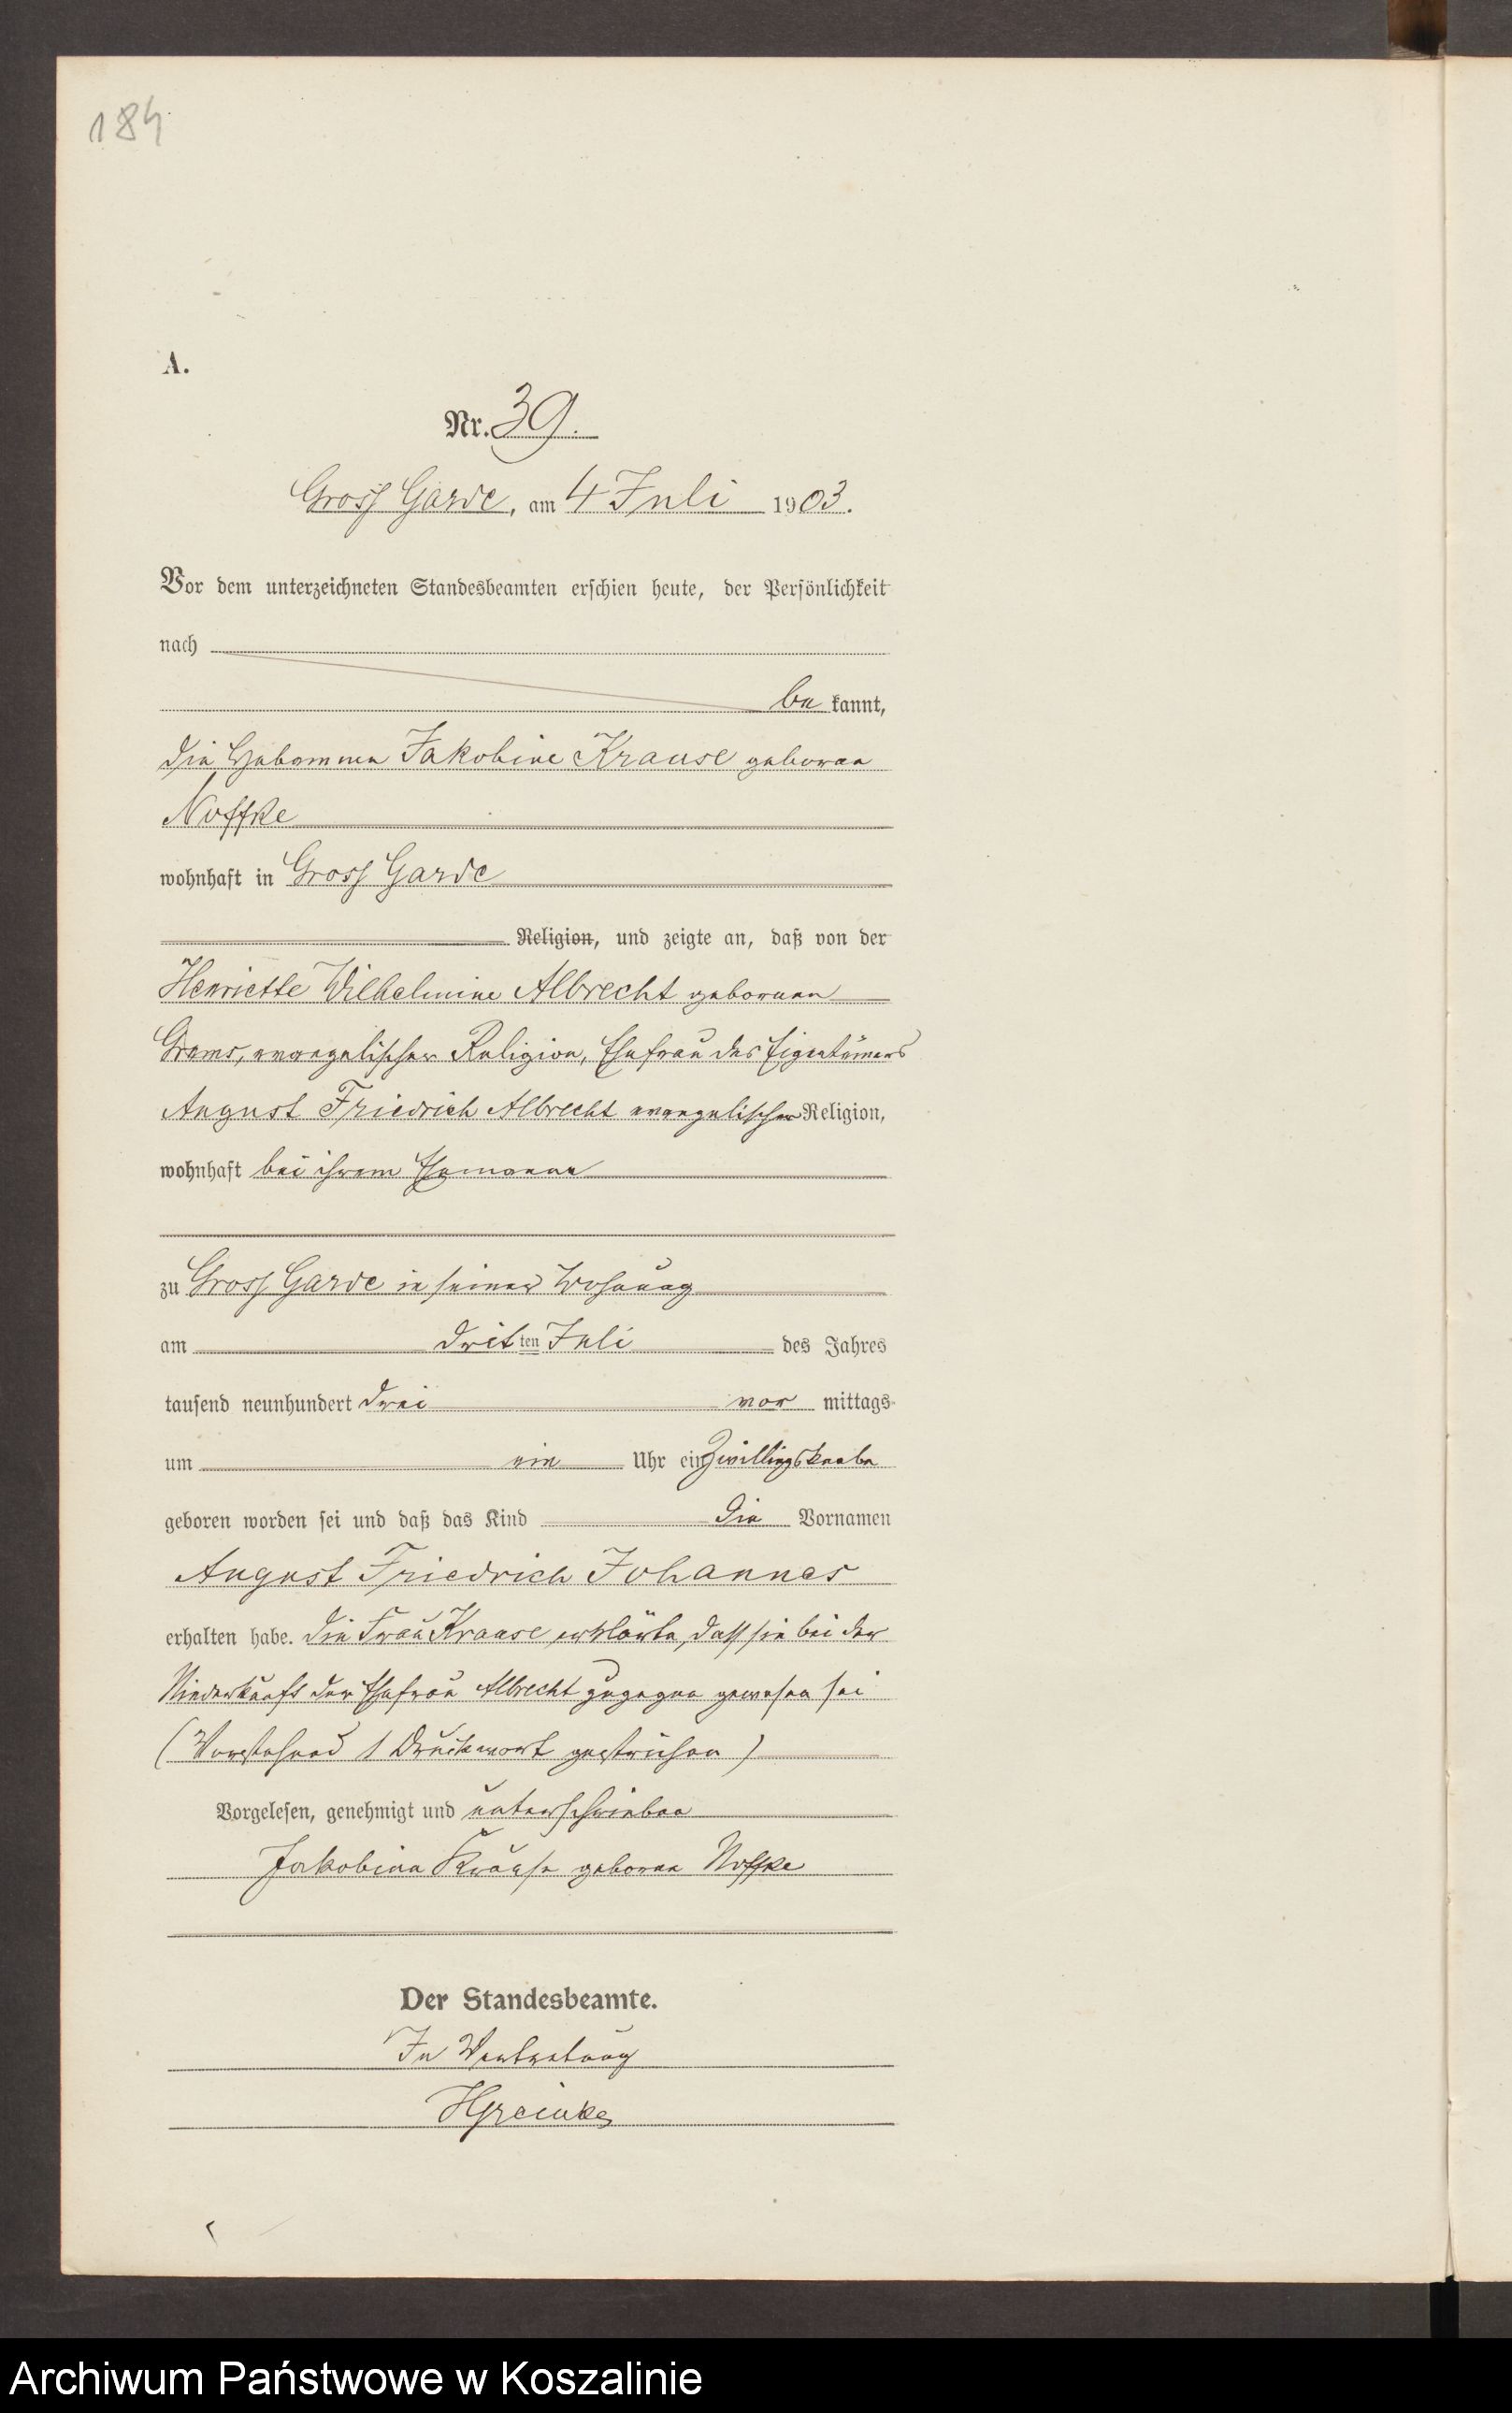 184
A.
Nr. 39.
Gross Garde, am 4 Juli 1903.
Vor dem unterzeichneten Standesbeamten erschien heute, der Persönlichkeit
nach
be kannt,
die Hebamme Jakobine Krause geboren
Noffke
wohnhaft in Gross Garde
Religion, und zeigte an, daß von der
Henriette Wilhelmine Albrecht geborenen
Grams, evangelischer Religion, Ehefrau des Eigentümers
August Friedrich Albrecht evangelischer Religion,
wohnhaft bei ihrem Ehemanne
zu Gross Garde in seiner Wohnung
am dritten Juli des Jahres
tausend neunhundert drei vor mittags
um ein Uhr ein Zwillingsknabe
geboren worden sei und daß das Kind die Vornamen
August Friedrich Johannes
erhalten habe. Die Frau Krause erklärte, dass sie bei der
Niederkunft der Ehefrau Albrecht zugegen gewesen sei
(Vorstehend 1 Druckwort gestrichen)
Vorgelesen, genehmigt und unterschrieben
Jakobine Krause geborne Noffke
Der Standesbeamte.
In Vertretung
Archiwum Państwowe w Koszalinie